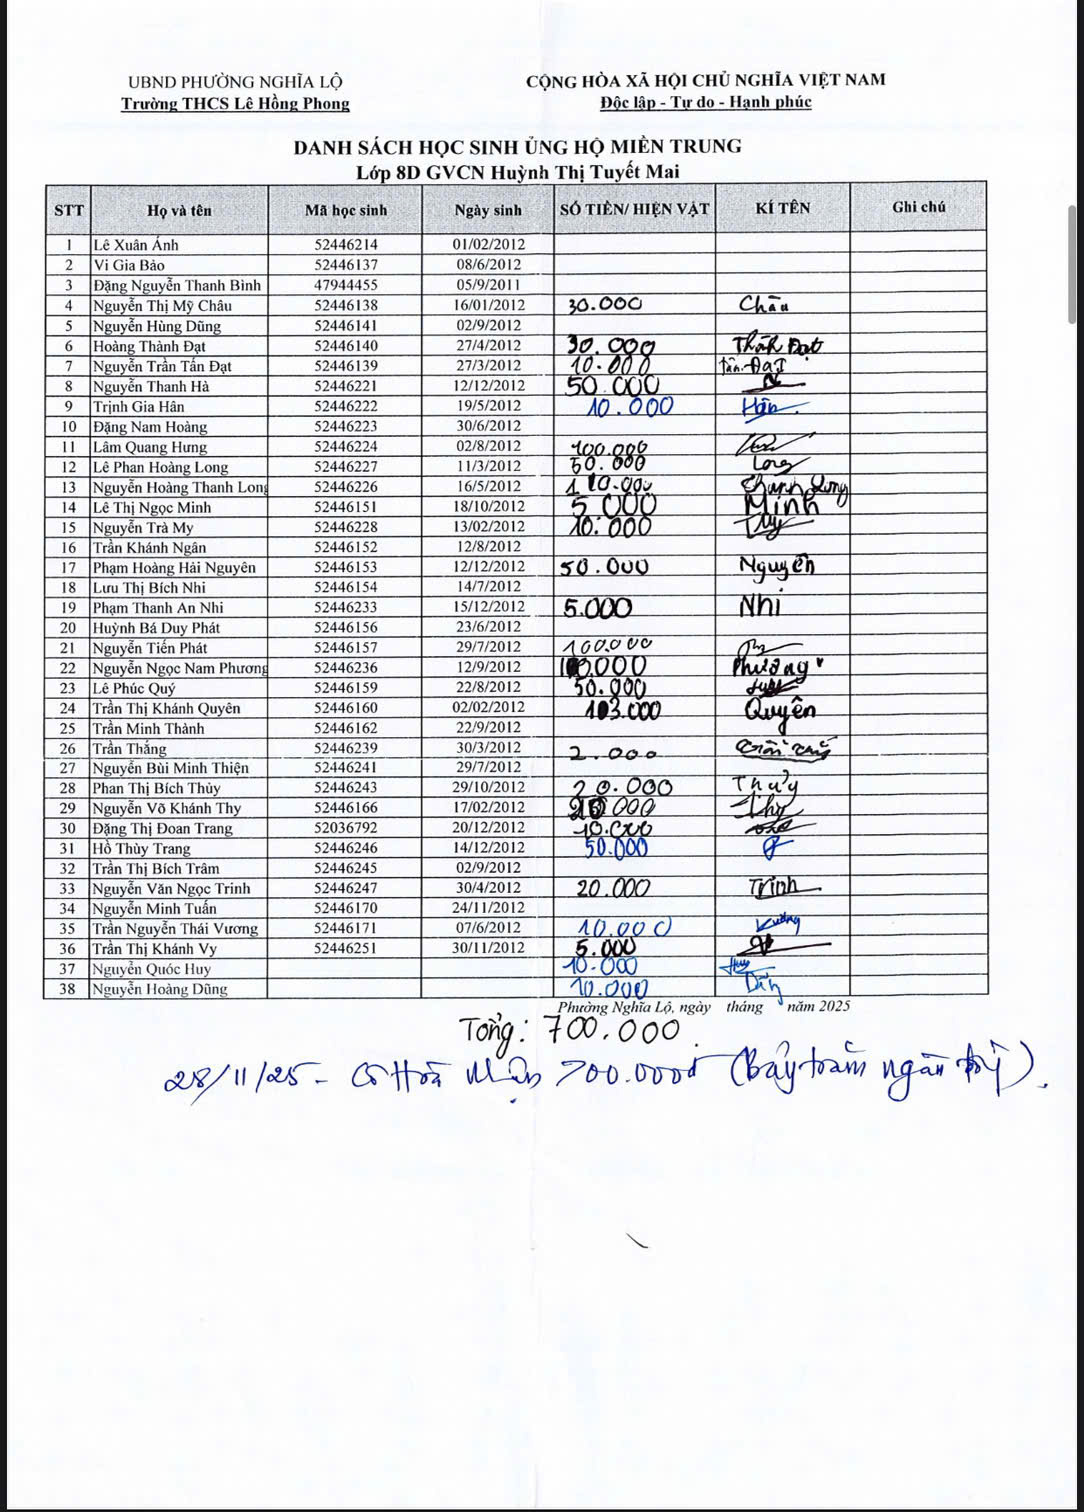 UBND PHƯỜNG NGHĨA LỘ
CỘNG HÒA XÃ HỘI CHỦ NGHĨA VIỆT NAM
Trường THCS Lê Hồng Phong
Độc lập - Tự do - Hạnh phúc
DANH SÁCH HỌC SINH ỦNG HỘ MIỀN TRUNG
Lớp 8D GVCN Huỳnh Thị Tuyết Mai
STT Họ và tên Mã học sinh Ngày sinh SỐ TIỀN/ HIỆN VẬT KÍ TÊN Ghi chú
1 Lê Xuân Ánh 52446214 01/02/2012
2 Vi Gia Bảo 52446137 08/6/2012
3 Đặng Nguyễn Thanh Bình 47944455 05/9/2011
4 Nguyễn Thị Mỹ Châu 52446138 16/01/2012 30.000 Châu
5 Nguyễn Hùng Dũng 52446141 02/9/2012
6 Hoàng Thành Đạt 52446140 27/4/2012 30.000 Thành Đạt
7 Nguyễn Trần Tấn Đạt 52446139 27/3/2012 10.000 Tấn Đạt
8 Nguyễn Thanh Hà 52446221 12/12/2012 50.000
9 Trịnh Gia Hân 52446222 19/5/2012 10.000 Hân
10 Đặng Nam Hoàng 52446223 30/6/2012
11 Lâm Quang Hưng 52446224 02/8/2012 100.000
12 Lê Phan Hoàng Long 52446227 11/3/2012 50.000 Long
13 Nguyễn Hoàng Thanh Long 52446226 16/5/2012 Thanh Long
14 Lê Thị Ngọc Minh 52446151 18/10/2012 5.000 Minh
15 Nguyễn Trà My 52446228 13/02/2012 10.000 My
16 Trần Khánh Ngân 52446152 12/8/2012
17 Phạm Hoàng Hải Nguyên 52446153 12/12/2012 50.000 Nguyên
18 Lưu Thị Bích Nhi 52446154 14/7/2012
19 Phạm Thanh An Nhi 52446233 15/12/2012 5.000 Nhi
20 Huỳnh Bá Duy Phát 52446156 23/6/2012
21 Nguyễn Tiến Phát 52446157 29/7/2012 100.000
22 Nguyễn Ngọc Nam Phương 52446236 12/9/2012 Phương
23 Lê Phúc Quý 52446159 22/8/2012 50.000
24 Trần Thị Khánh Quyên 52446160 02/02/2012 Quyên
25 Trần Minh Thành 52446162 22/9/2012
26 Trần Thắng 52446239 30/3/2012 2.000
27 Nguyễn Bùi Minh Thiện 52446241 29/7/2012
28 Phan Thị Bích Thủy 52446243 29/10/2012 20.000 Thủy
29 Nguyễn Võ Khánh Thy 52446166 17/02/2012 Thy
30 Đặng Thị Đoan Trang 52036792 20/12/2012 10.000
31 Hồ Thùy Trang 52446246 14/12/2012 50.000
32 Trần Thị Bích Trâm 52446245 02/9/2012
33 Nguyễn Văn Ngọc Trinh 52446247 30/4/2012 20.000 Trinh
34 Nguyễn Minh Tuấn 52446170 24/11/2012
35 Trần Nguyễn Thái Vương 52446171 07/6/2012 10.000 Vương
36 Trần Thị Khánh Vy 52446251 30/11/2012 5.000
37 Nguyễn Quốc Huy 10.000 Huy
38 Nguyễn Hoàng Dũng 10.000 Dũng
Phường Nghĩa Lộ, ngày tháng năm 2025
Tổng: 700.000
28/11/25 - Cô Hoà nhận 700.000đ (Bảy trăm ngàn).